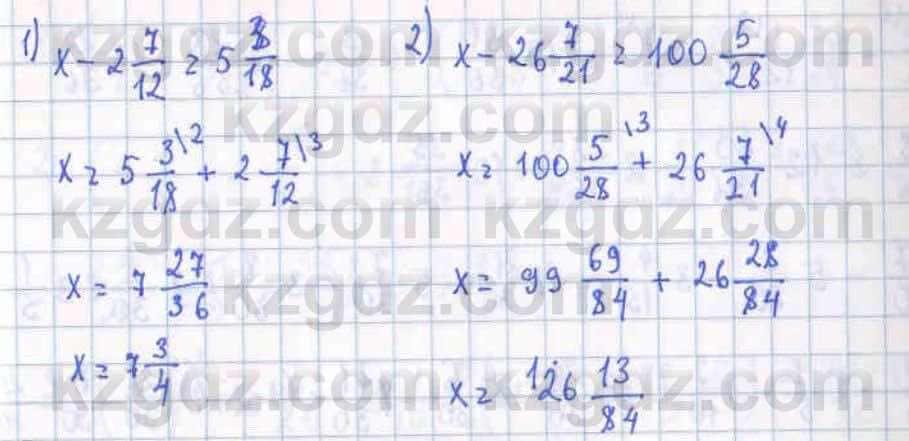 1) x - 2 7/12 = 5 3/18
x = 5 3\2/18 + 2 7\3/12
x = 7 27/36
x = 7 3/4
2) x - 26 7/21 = 100 5/28
x = 100 5\3/28 + 26 7\4/21
x = 99 69/84 + 26 28/84
x = 126 13/84
kzgdz.com
kzgdz.com
kzgdz.com
kzgdz.com
kzgdz.com
kzgdz.com
kzgdz.com
kzgdz.com